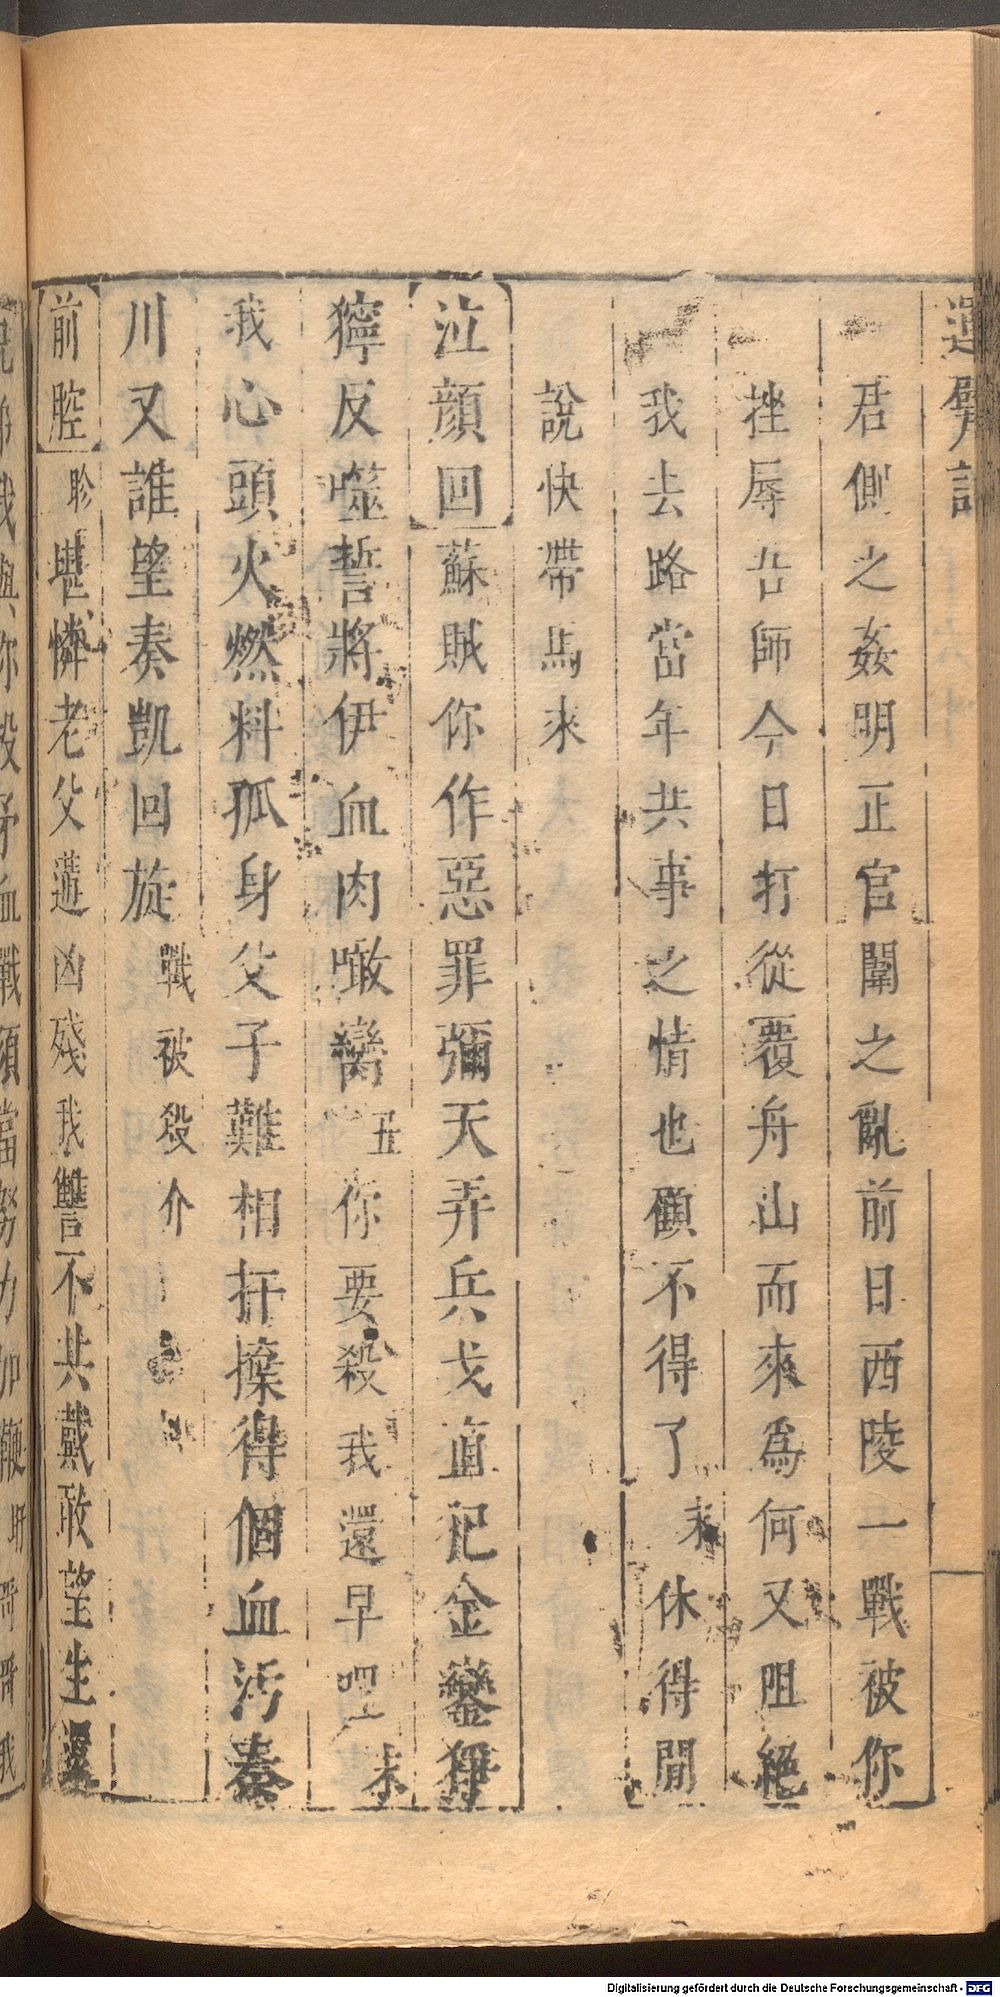 運甓記
君側之姦明正官闈之亂前日西陵一戰被你
挫辱吾師今日打從覆舟山而來爲何又阻絕
我去路當年共事之情也顧不得了末休得閒
說快帶馬來
泣顔回蘇賊你作惡罪彌天弄兵戈直犯金鑾猙
獰反噬誓將伊血肉噉臠丑你要殺我還早哩末
我心頭火燃料孤身父子難相扞搡得個血汚秦
川又誰望奏凱回旋戰被殺介
前腔眕堪憐老父遭凶殘我讐不共戴敢望生還
我與你殺
血戰須當努力加鞭
Digitalisierung gefördert durch die Deutsche Forschungsgemeinschaft - DFG